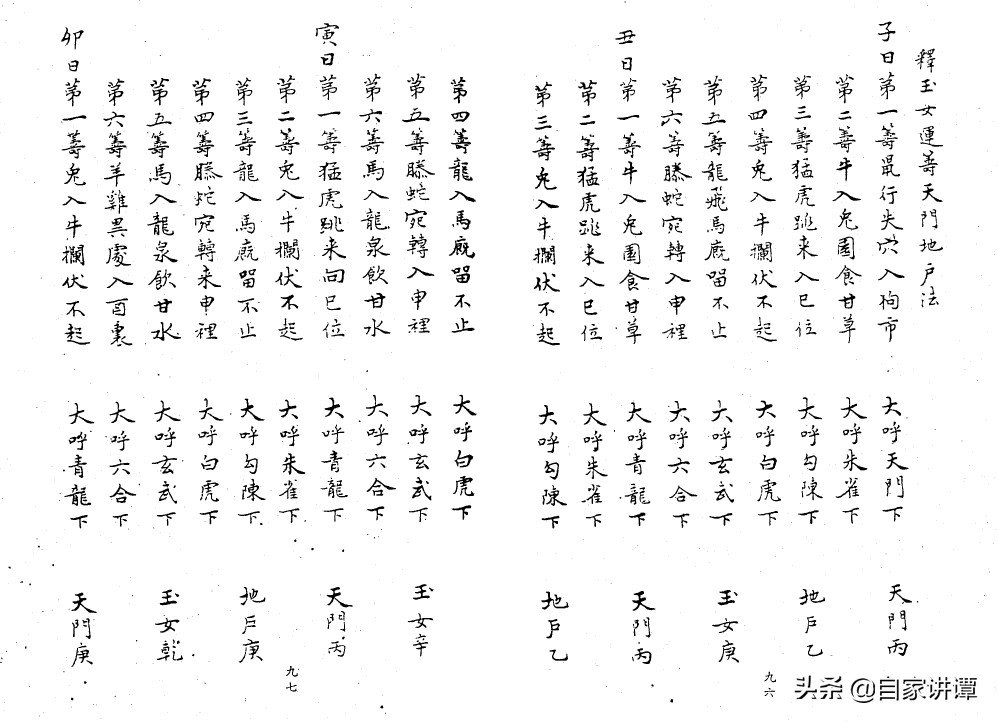 釋玉女運籌天門地戶法
子日第一籌鼠行失穴入狗市 大呼天門下 天門丙
第二籌牛入兔園食甘草 大呼朱雀下
第三籌猛虎跳來入巳位 大呼勾陳下 地戶乙
第四籌兔入牛欄伏不起 大呼白虎下
第五籌龍飛馬廐留不止 大呼玄武下 玉女庚
第六籌螣蛇宛轉入申裡 大呼六合下
丑日第一籌牛入兔園食甘草 大呼青龍下 天門丙
第二籌猛虎跳來入巳位 大呼朱雀下
第三籌兔入牛欄伏不起 大呼勾陳下 地戶乙
九六
第四籌龍入馬廐留不止 大呼白虎下
第五籌螣蛇宛轉入申裡 大呼玄武下 玉女辛
第六籌馬入龍泉飲甘水 大呼六合下
寅日第一籌猛虎跳來向巳位 大呼青龍下 天門丙
第二籌兔入牛欄伏不起 大呼朱雀下
第三籌龍入馬廐留不止 大呼勾陳下 地戶庚
第四籌螣蛇宛轉來申裡 大呼白虎下
第五籌馬入龍泉飲甘水 大呼玄武下 玉女乾
第六籌羊雞異處入酉裏 大呼六合下
卯日第一籌兔入牛欄伏不起 大呼青龍下 天門庚
九七
头条 @自家讲谭